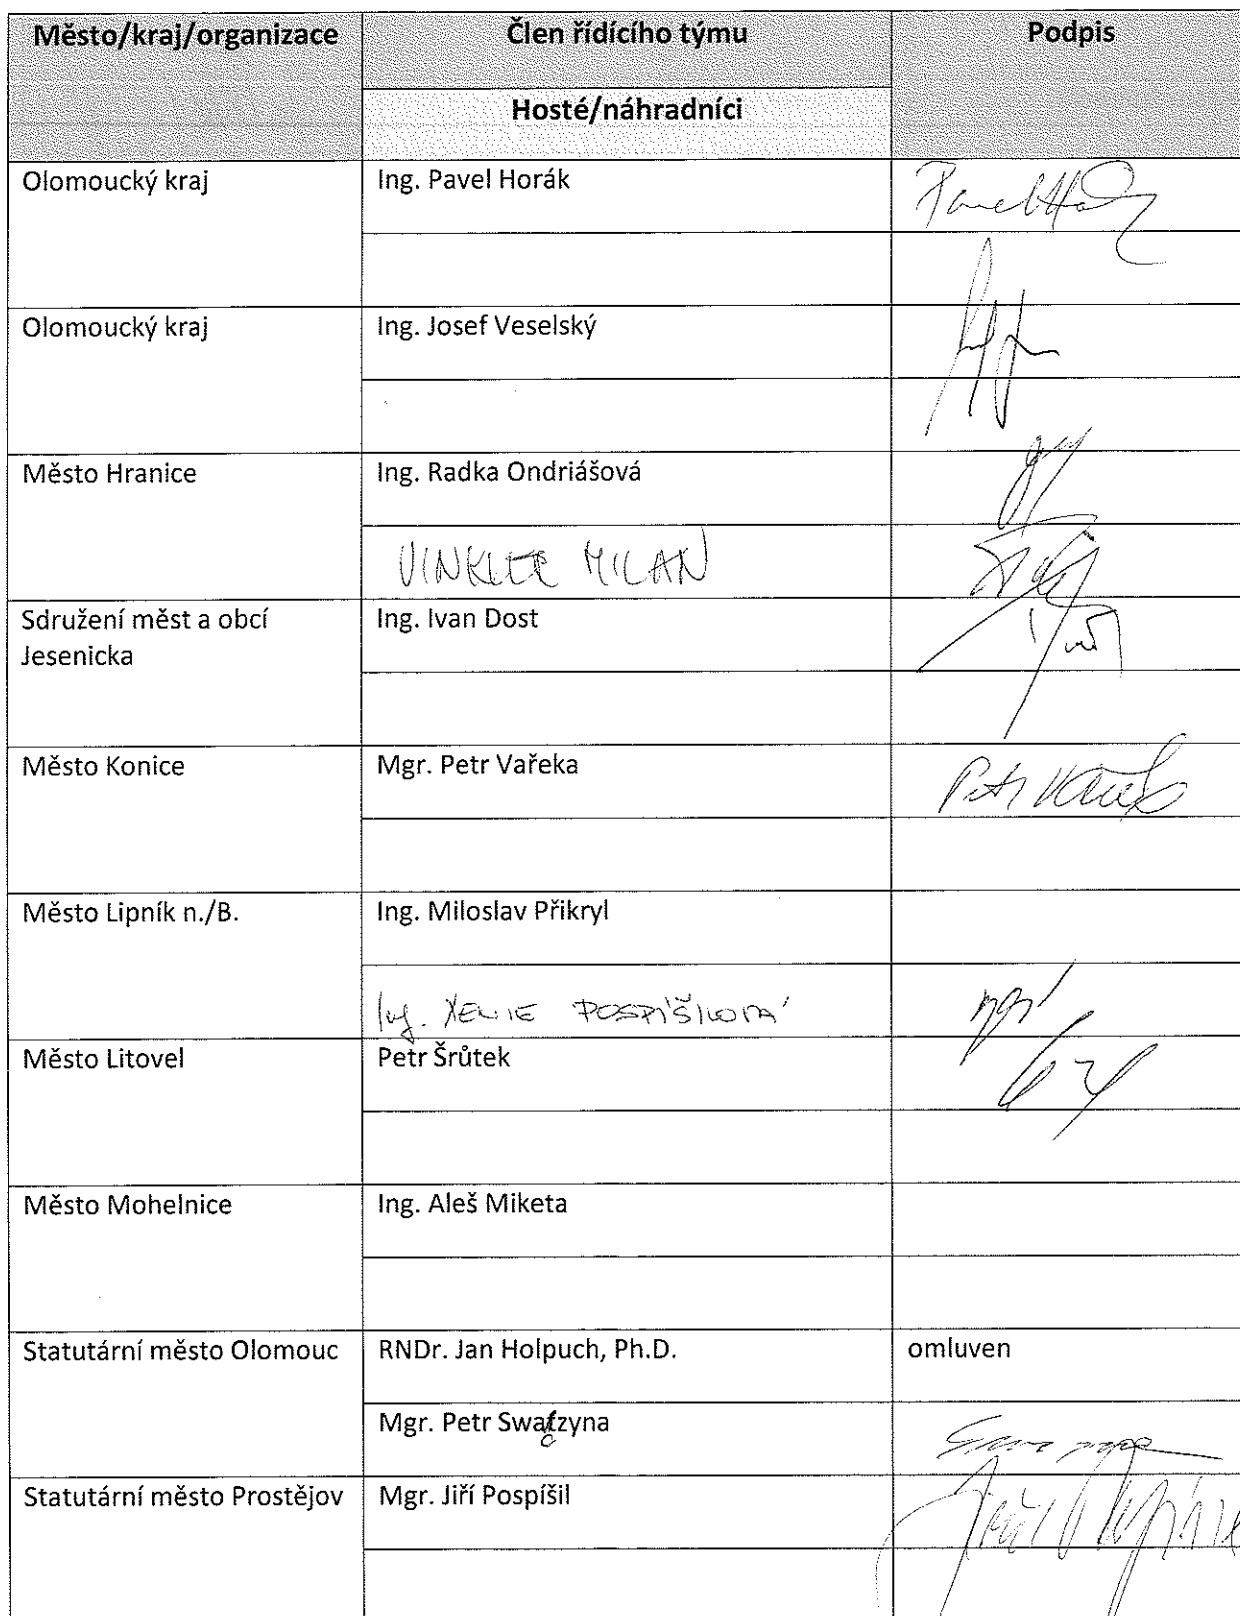 Město/kraj/organizace
Člen řídícího týmu
Podpis
Hosté/náhradníci
Olomoucký kraj
Ing. Pavel Horák
Olomoucký kraj
Ing. Josef Veselský
Město Hranice
Ing. Radka Ondriášová
VINKLER MILAN
Sdružení měst a obcí
Jesenicka
Ing. Ivan Dost
Město Konice
Mgr. Petr Vařeka
Petr Vařeka
Město Lipník n./B.
Ing. Miloslav Přikryl
Ing. XENIE POSPÍŠILOVÁ
Město Litovel
Petr Šrůtek
Město Mohelnice
Ing. Aleš Miketa
Statutární město Olomouc
RNDr. Jan Holpuch, Ph.D.
omluven
Mgr. Petr
Statutární město Prostějov
Mgr. Jiří Pospíšil